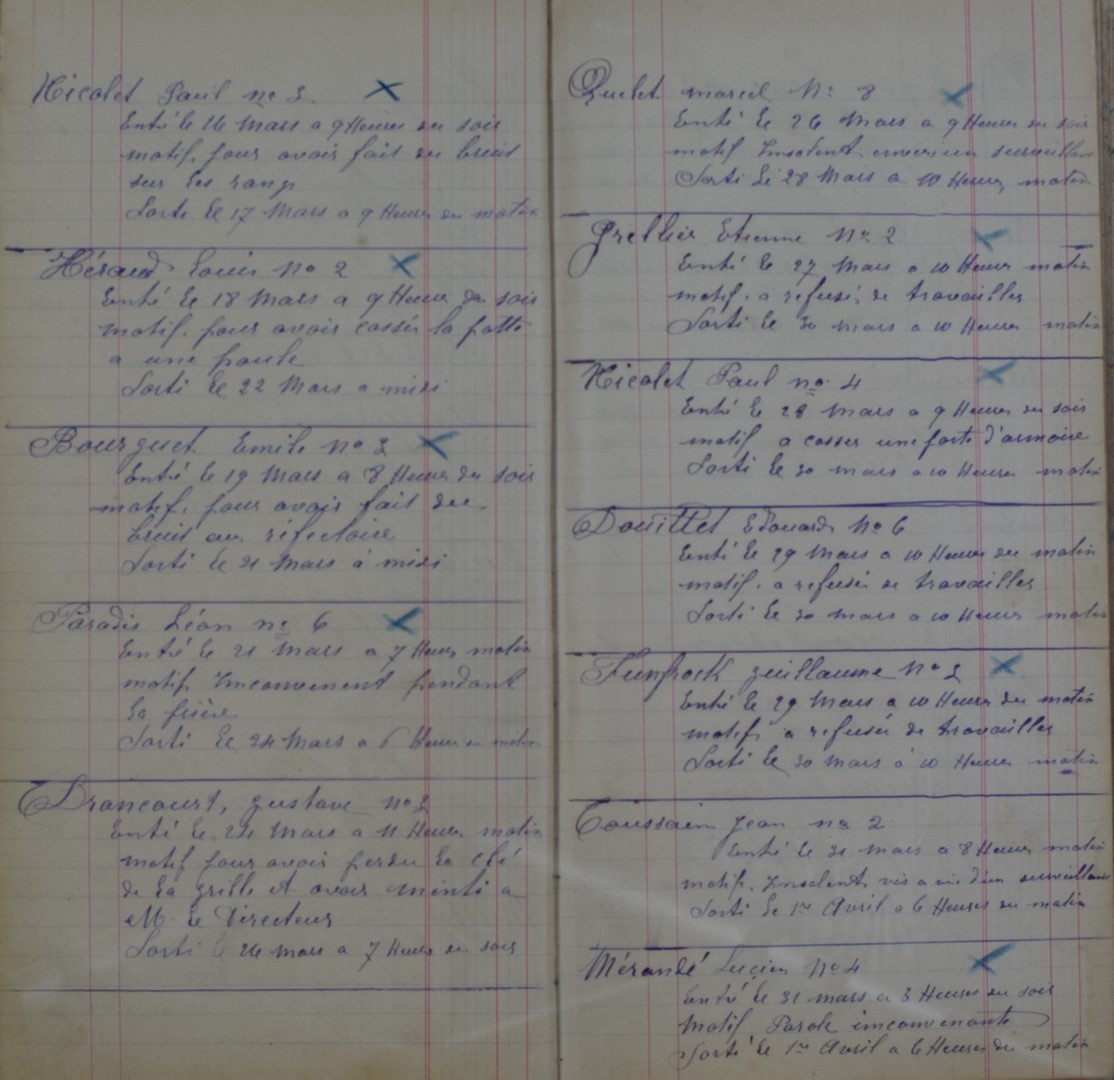 Nicolet Paul no 3
Entré le 16 Mars a 9 Heures du soir
motif. pour avoir fait du bruit
sur les rangs
Sorti le 17 Mars a 9 Heures du matin
Héraud Louis No 2
Entré le 18 Mars a 9 Heures du soir
motif. pour avoir cassér la patte
a une poule
Sorti le 22 Mars a midi
Bourguet Emile No 3
Entré le 19 Mars a 8 Heures du soir
motif. pour avoir fait du
bruit au réfectoire
Sorti le 21 Mars à midi
Paradis Léon no 6
Entré le 21 Mars a 7 Heures matin
motif Inconvenent pendant
la prière
Sorti le 24 Mars a 6 Heures du matin
Drancourt, Gustave no 3
Entré le 24 Mars a 11 Heures matin
motif pour avoir perdu la clé
de la grille et avoir menti a
M. le Directeur
Sorti le 26 mars a 7 Heures du soir
Quelet marcel No 8
Entré le 26 Mars a 9 Heures du soir
motif Insolent envers un surveillant
Sorti le 28 Mars a 10 Heures matin
Grellier Etienne No 2
Entré le 27 Mars a 10 Heures matin
motif. a refusé de travailler
Sorti le 30 mars a 10 Heures matin
Nicolet Paul no 4
Entré le 28 mars a 9 Heures du soir
motif a casser une porte d'armoire
Sorti le 30 mars a 10 Heures matin
Douillet Edouard No 6
Entré le 29 Mars a 10 Heures du matin
motif. a refusé de travailler
Sorti le 30 mars a 10 Heures matin
Funfrock Guillaume No 3
Entré le 29 Mars a 10 Heures du matin
motif a refusé de travailler
Sorti le 30 mars à 10 Heures matin
Toussain Jean no 2
Entré le 31 mars a 8 Heures matin
motif. Insolent vis a vis d'un surveillant
Sorti le 1er Avril a 6 Heures du matin
Mérandé Lucien No 4
Entré le 31 mars a 3 Heures du soir
Motif Parole inconvenante
Sorti le 1er Avril a 6 Heures du matin